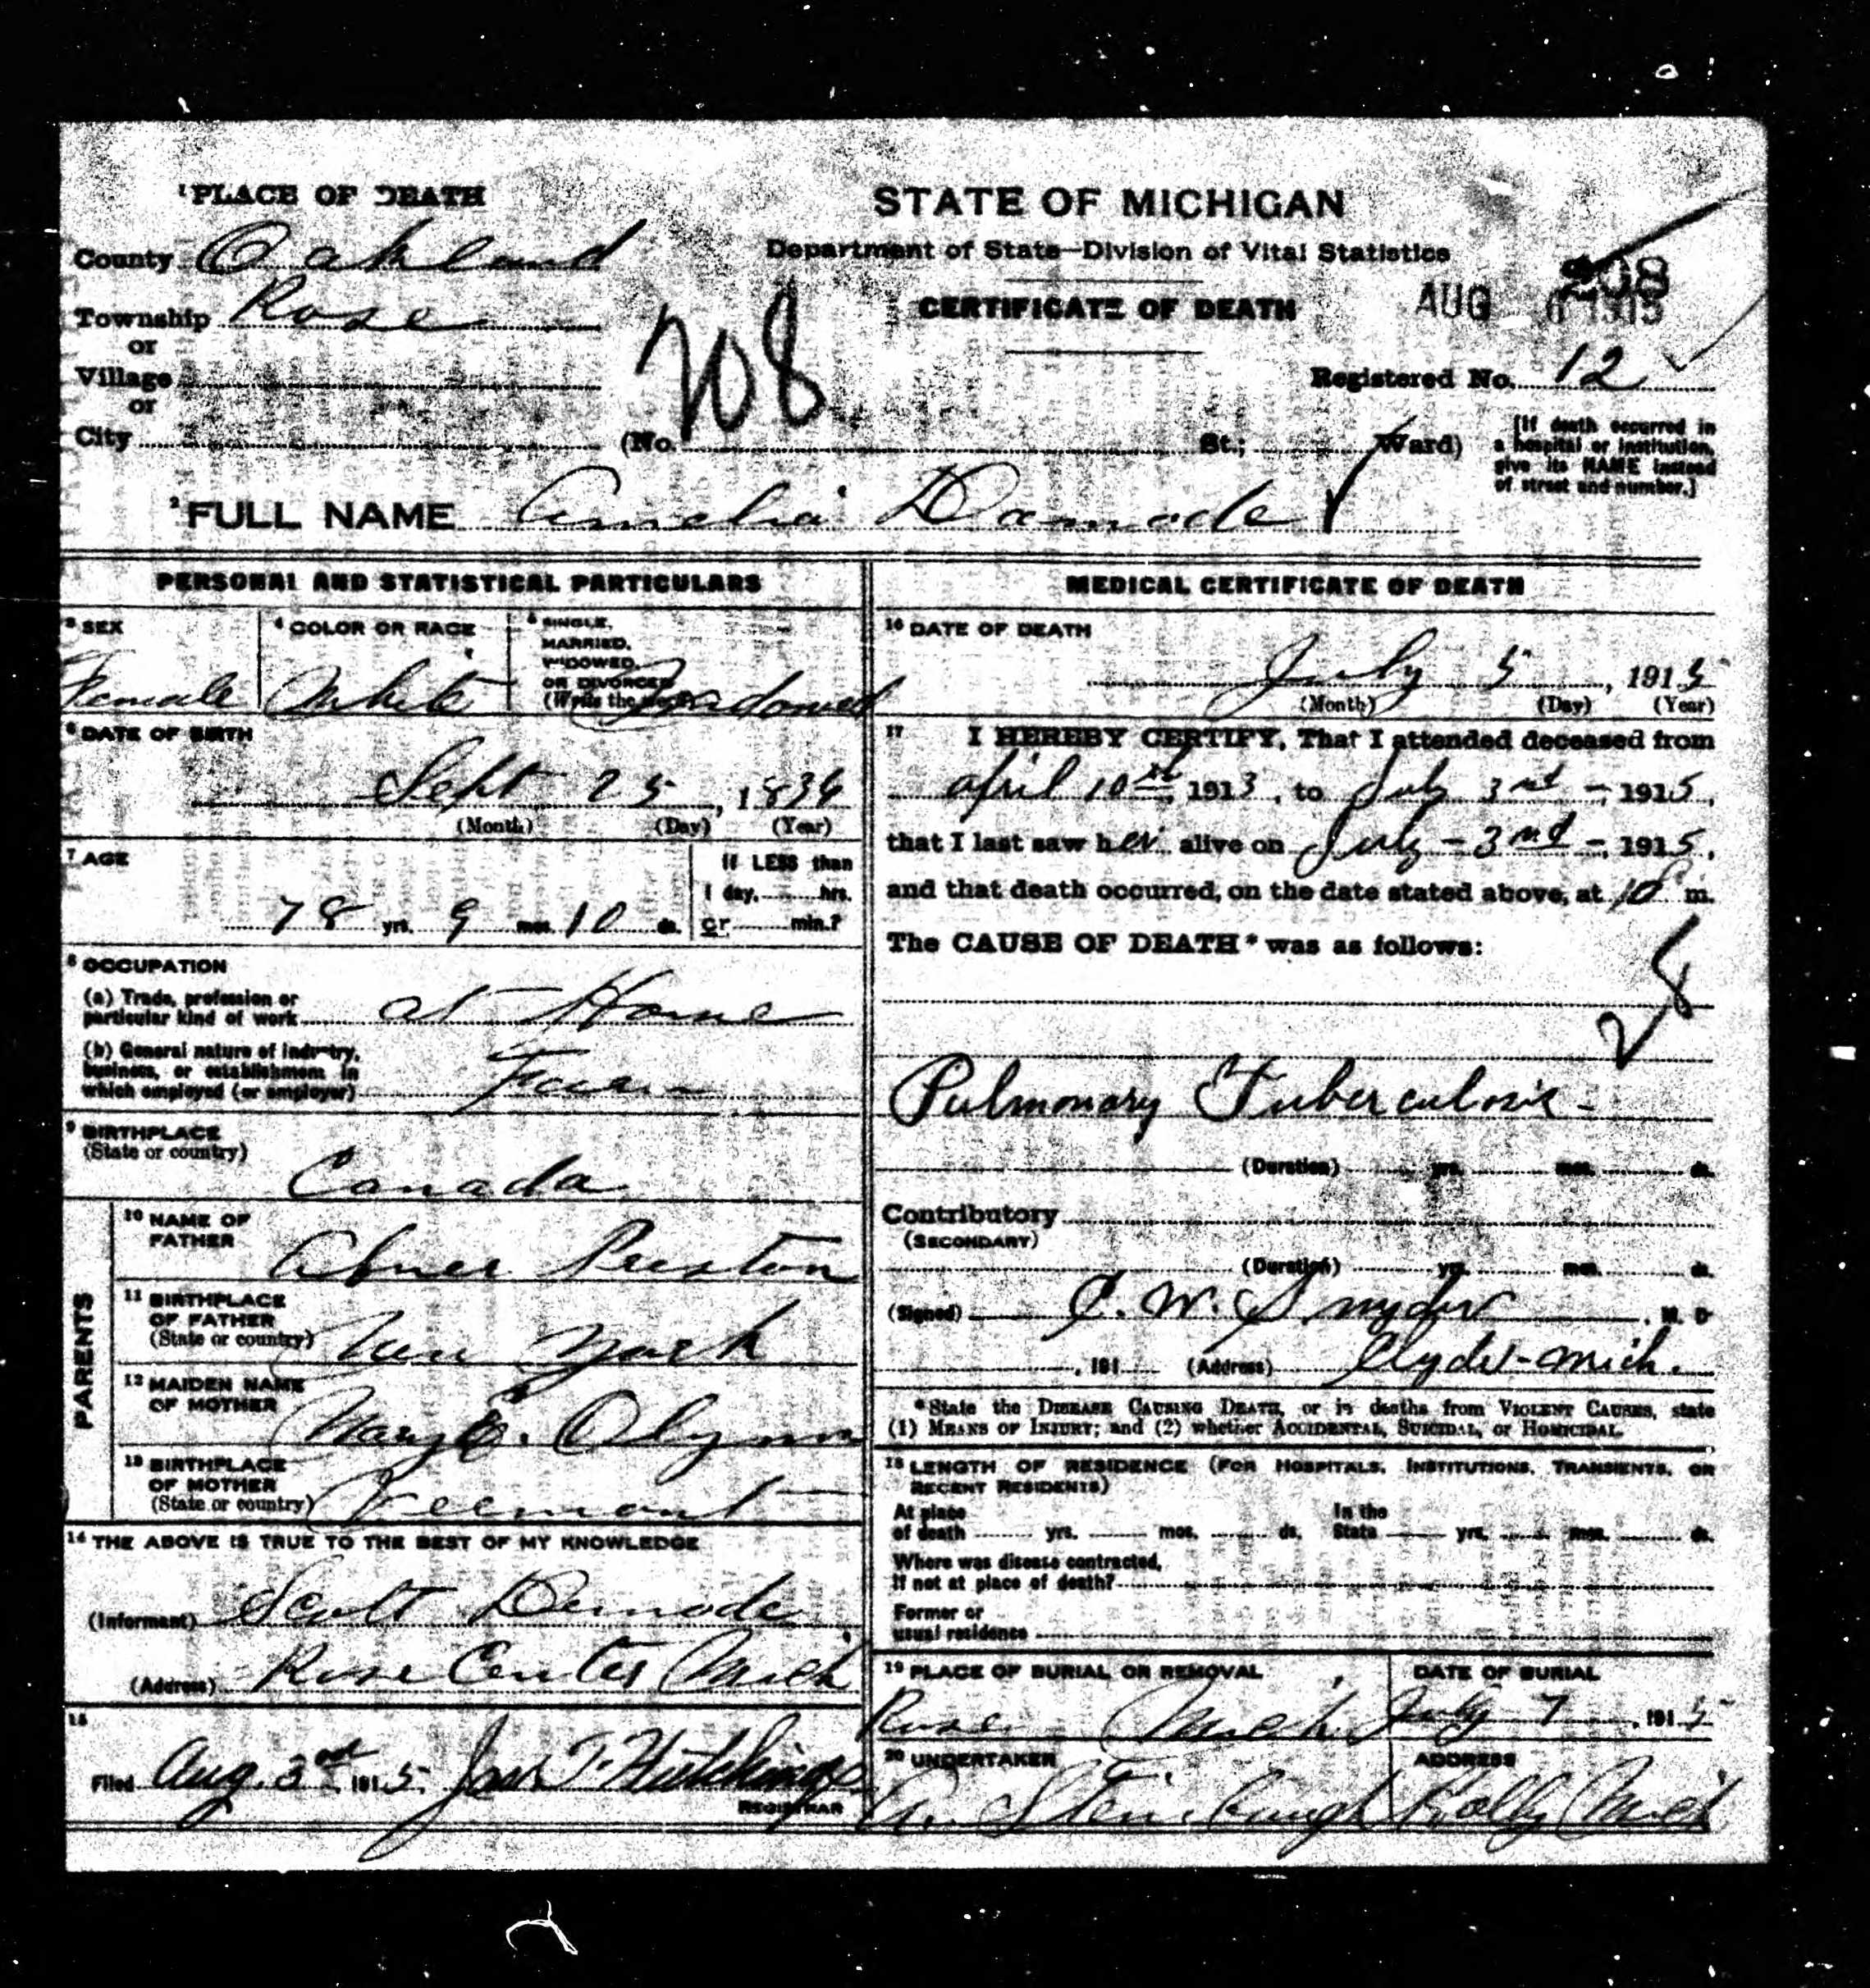 1 PLACE OF DEATH
County Oakland
Township Rose
or
Village
or
City
STATE OF MICHIGAN
Department of State—Division of Vital Statistics
CERTIFICATE OF DEATH
208
AUG 6 1915
Registered No. 12
708
(No. St.; Ward)
[If death occurred in
a hospital or institution,
give its NAME instead
of street and number.]
2 FULL NAME Amelia Damode
PERSONAL AND STATISTICAL PARTICULARS
3 SEX
Female
4 COLOR OR RACE
White
5 SINGLE,
MARRIED,
WIDOWED,
OR DIVORCED
(Write the word) Widowed
6 DATE OF BIRTH
Sept 25, 1836
(Month) (Day) (Year)
7 AGE
78 yrs. 9 mos. 10 ds.
If LESS than
1 day, hrs.
or min.?
8 OCCUPATION
(a) Trade, profession or
particular kind of work at Home
(b) General nature of industry,
business, or establishment in
which employed (or employer) Farm
9 BIRTHPLACE
(State or country)
Canada
PARENTS
10 NAME OF
FATHER
Abner Preston
11 BIRTHPLACE
OF FATHER
(State or country) New York
12 MAIDEN NAME
OF MOTHER
Mary E. Olynn
13 BIRTHPLACE
OF MOTHER
(State or country) Vermont
14 THE ABOVE IS TRUE TO THE BEST OF MY KNOWLEDGE
(Informant) Scott Demode
(Address) Rose Center Mich
15
Filed Aug. 3rd 1915. Jas T. Hutchings
REGISTRAR
MEDICAL CERTIFICATE OF DEATH
16 DATE OF DEATH
July 5, 1915
(Month) (Day) (Year)
17 I HEREBY CERTIFY, That I attended deceased from
april 10th, 1913, to July 3rd -, 1915,
that I last saw her alive on July - 3rd -, 1915,
and that death occurred, on the date stated above, at 10 P m.
The CAUSE OF DEATH* was as follows:
28
Pulmonary Tuberculosis -
(Duration) yrs. mos. ds.
Contributory
(SECONDARY)
(Duration) yrs. mos. ds.
(Signed) C. W. Snyder, M. D
, 191 (Address) Clyde - Mich.
*State the DISEASE CAUSING DEATH, or in deaths from VIOLENT CAUSES, state
(1) MEANS OF INJURY; and (2) whether ACCIDENTAL, SUICIDAL, or HOMICIDAL.
18 LENGTH OF RESIDENCE (FOR HOSPITALS, INSTITUTIONS, TRANSIENTS, OR
RECENT RESIDENTS)
At place
of death yrs. mos. ds.
In the
State yrs. mos. ds.
Where was disease contracted,
If not at place of death?
Former or
usual residence
19 PLACE OF BURIAL OR REMOVAL
Rose Mich.
DATE OF BURIAL
July 7, 1915
20 UNDERTAKER
A. Steinbaugh
ADDRESS
Holly Mich